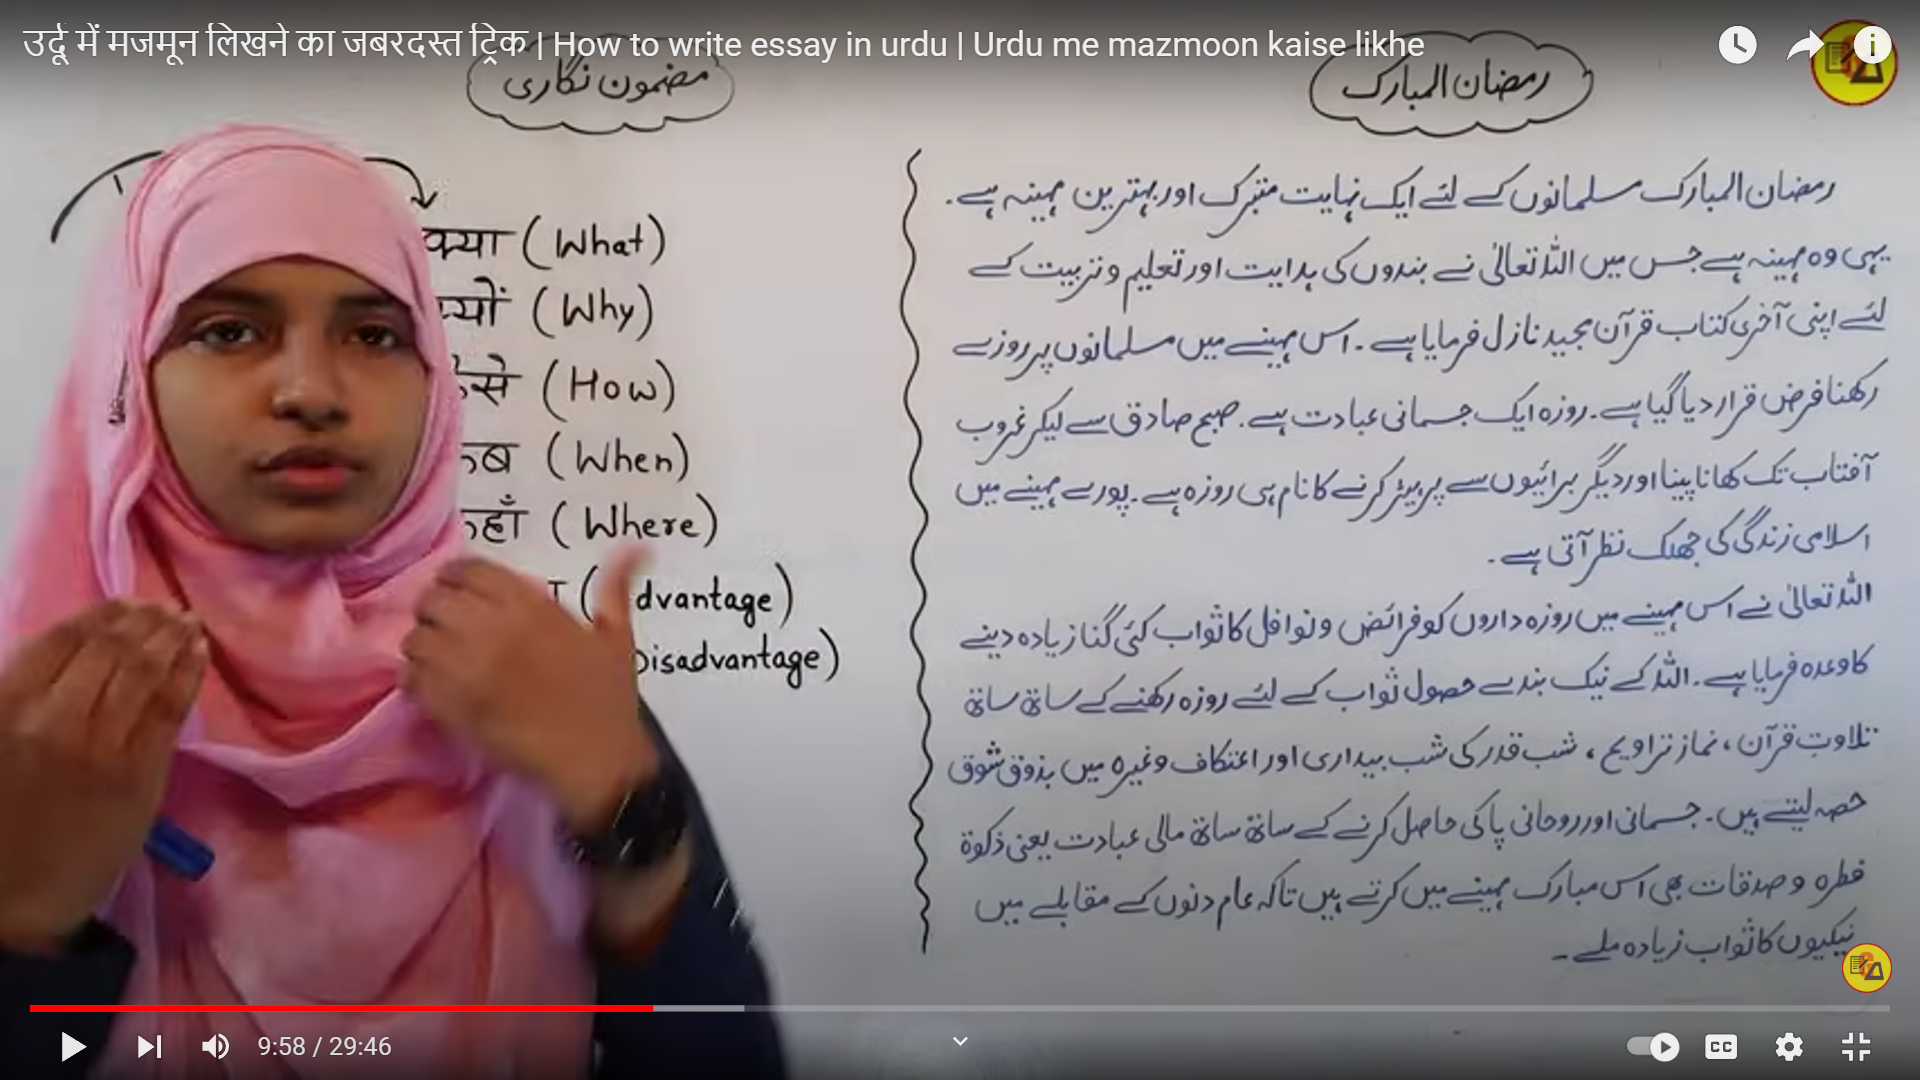 उर्दू में मजमून लिखने का जबरदस्त ट्रिक | How to write essay in urdu | Urdu me mazmoon kaise likhe
مضمون نگاری
क्या (What)
(Why)
(How)
(When)
(Where)
dvantage)
Disadvantage)
رمضان المبارک
رمضان المبارک مسلمانوں کے لئے ایک نہایت متبرک اور بہترین مہینہ ہے۔
یہی وہ مہینہ ہے جس میں اللہ تعالیٰ نے بندوں کی ہدایت اور تعلیم و تربیت کے
لئے اپنی آخری کتاب قرآن مجید نازل فرمایا ہے۔ اس مہینے میں مسلمانوں پر روزے
رکھنا فرض قرار دیا گیا ہے۔ روزہ ایک جسمانی عبادت ہے۔ صبح صادق سے لیکر غروب
آفتاب تک کھانا پینا اور دیگر برائیوں سے پرہیز کرنے کا نام ہی روزہ ہے۔ پورے مہینے میں
اسلامی زندگی کی جھلک نظر آتی ہے۔
اللہ تعالیٰ نے اس مہینے میں روزہ داروں کو فرائض و نوافل کا ثواب کئی گنا زیادہ دینے
کا وعدہ فرمایا ہے۔ اللہ کے نیک بندے حصول ثواب کے لئے روزہ رکھنے کے ساتھ ساتھ
تلاوت قرآن، نماز تراویح، شب قدر کی شب بیداری اور اعتکاف وغیرہ میں بذوق شوق
حصہ لیتے ہیں۔ جسمانی اور روحانی پاکی حاصل کرنے کے ساتھ ساتھ مالی عبادت یعنی ذکوة
فطرہ و صدقات بھی اس مبارک مہینے میں کرتے ہیں تاکہ عام دنوں کے مقابلے میں
نیکیوں کا ثواب زیادہ ملے۔
9:58 / 29:46
CC